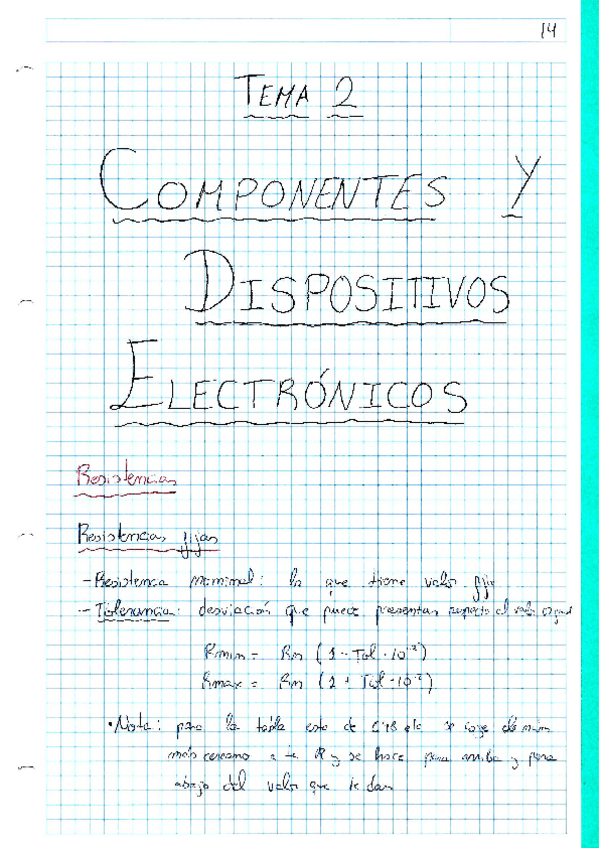 14
TEMA 2
COMPONENTES Y
DISPOSITIVOS
ELECTRÓNICOS
Resistencias
Resistencias fijas
- Resistencia nominal: la que tiene valor fijo
- Tolerancia: desviación que puede presentar respecto al valor
Rmin = Rn (1 - Tol · 10⁻²)
Rmax = Rn (1 + Tol · 10⁻²)
• Nota: para la tabla esta de se coge el núm
más cercano a tu R y se hace para arriba y para
abajo del valor que te dan